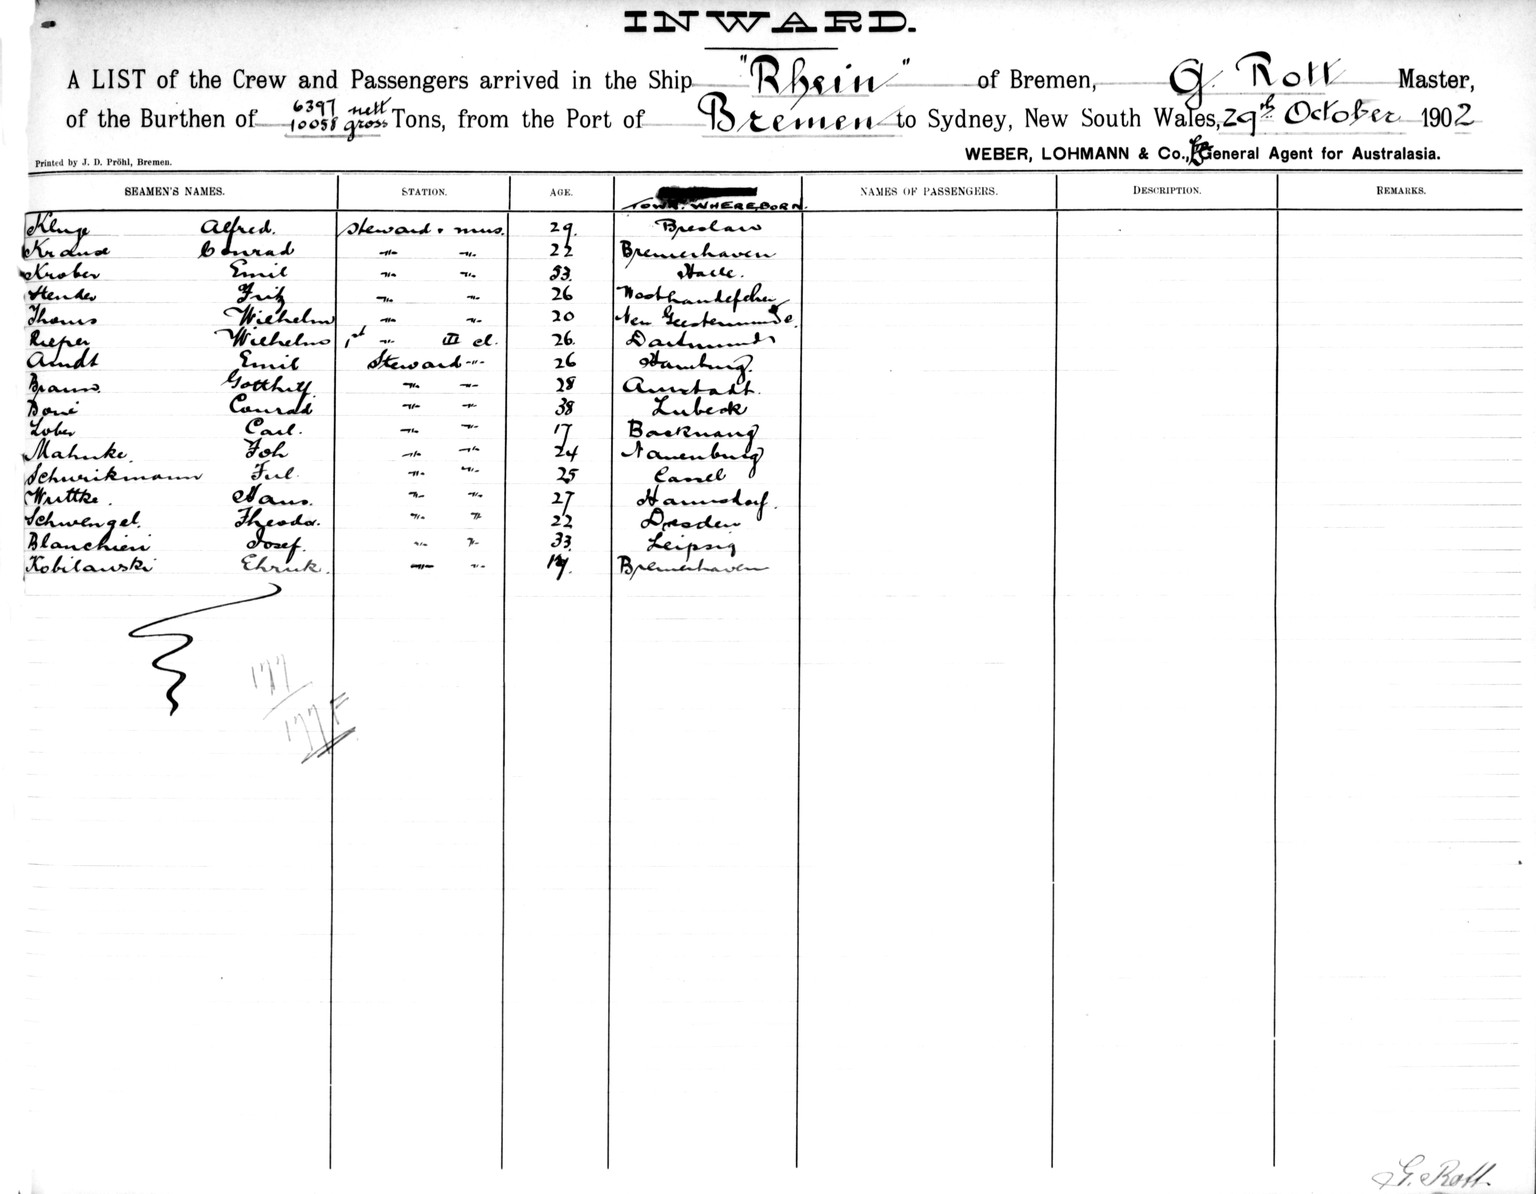 INWARD.
A LIST of the Crew and Passengers arrived in the Ship "Rhein" of Bremen, G. Rott Master,
of the Burthen of 6397 nett 10058 gross Tons, from the Port of Bremen to Sydney, New South Wales, 29th October 1902
Printed by J. D. Pröhl, Bremen.
WEBER, LOHMANN & Co., General Agent for Australasia.
SEAMEN'S NAMES. STATION. AGE. TOWN WHERE BORN. NAMES OF PASSENGERS. DESCRIPTION. REMARKS.
Kluge Alfred. Steward & mus. 29. Breslau
Krause Conrad -"- -"- 22 Bremerhaven
Krober Emil -"- -"- 33. Halle.
Stender Fritz -"- -"- 26
Thoms Wilhelm -"- -"- 20 Neu Geestemünde.
Rieper Wilhelm 1st -"- III cl. 26. Dortmund
Arndt Emil Steward -"- 26 Hamburg.
Braun. Gotthilf. -"- -"- 28 Arnstadt.
Conrad -"- -"- 38 Lubeck
Lober Carl. -"- -"- 17 Backnang
Mahnke. Joh -"- -"- 24 Nauenburg
Schwrikmann Jul. -"- -"- 25 Cassel
Wuttke. Hans. -"- -"- 27 Hannsdorf.
Schwengel. Theodor. -"- -"- 22 Dresden
Blanchieri Josef. -"- -"- 33. Leipzig
Kobilawski -"- -"- Bremerhaven
177
177 F
G. Rott.